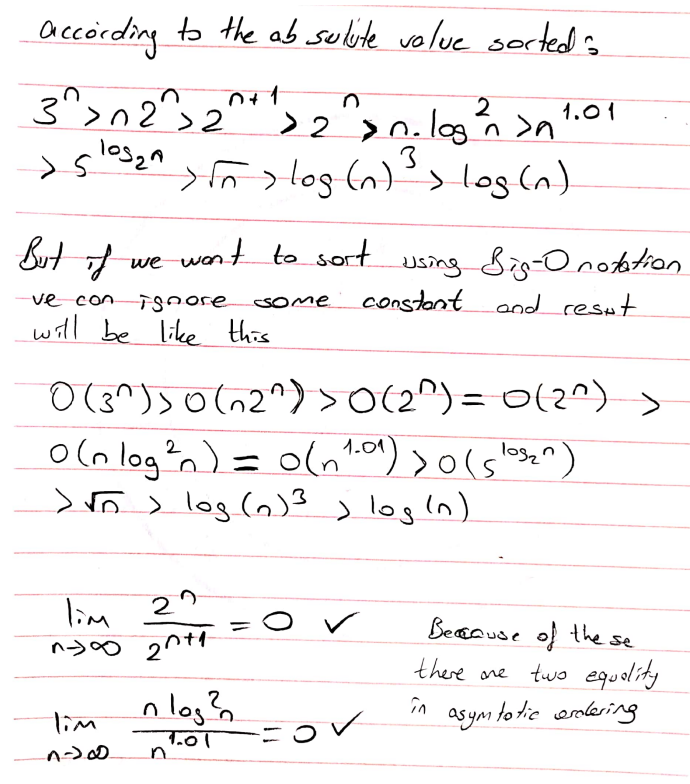 according to the absulute value sorted:
3^n > n2^n > 2^{n+1} > 2^n > n.log^2 n > n^{1.01}
> 5^{log_2 n} > √n > log(n)^3 > log(n)
But if we want to sort using Big-O notation
we con ignore some constant and resut
will be like this
O(3^n) > O(n2^n) > O(2^n) = O(2^n) >
O(n log^2 n) = O(n^{1.01}) > O(5^{log_2 n})
> √n > log(n)^3 > log(n)
lim n→∞ 2^n / 2^{n+1} = 0 ✓
lim n→∞ n log^2 n / n^{1.01} = 0 ✓
Because of the se
there are two equality
in asymtotic ordering